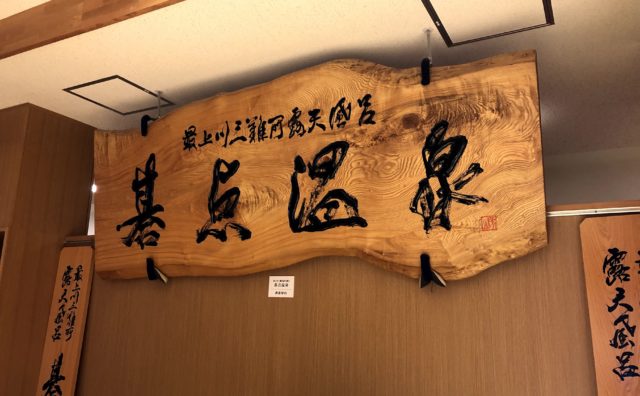 最上川三難所露天風呂
碁点温泉
最上川三難所
露天風呂
碁
露天風呂